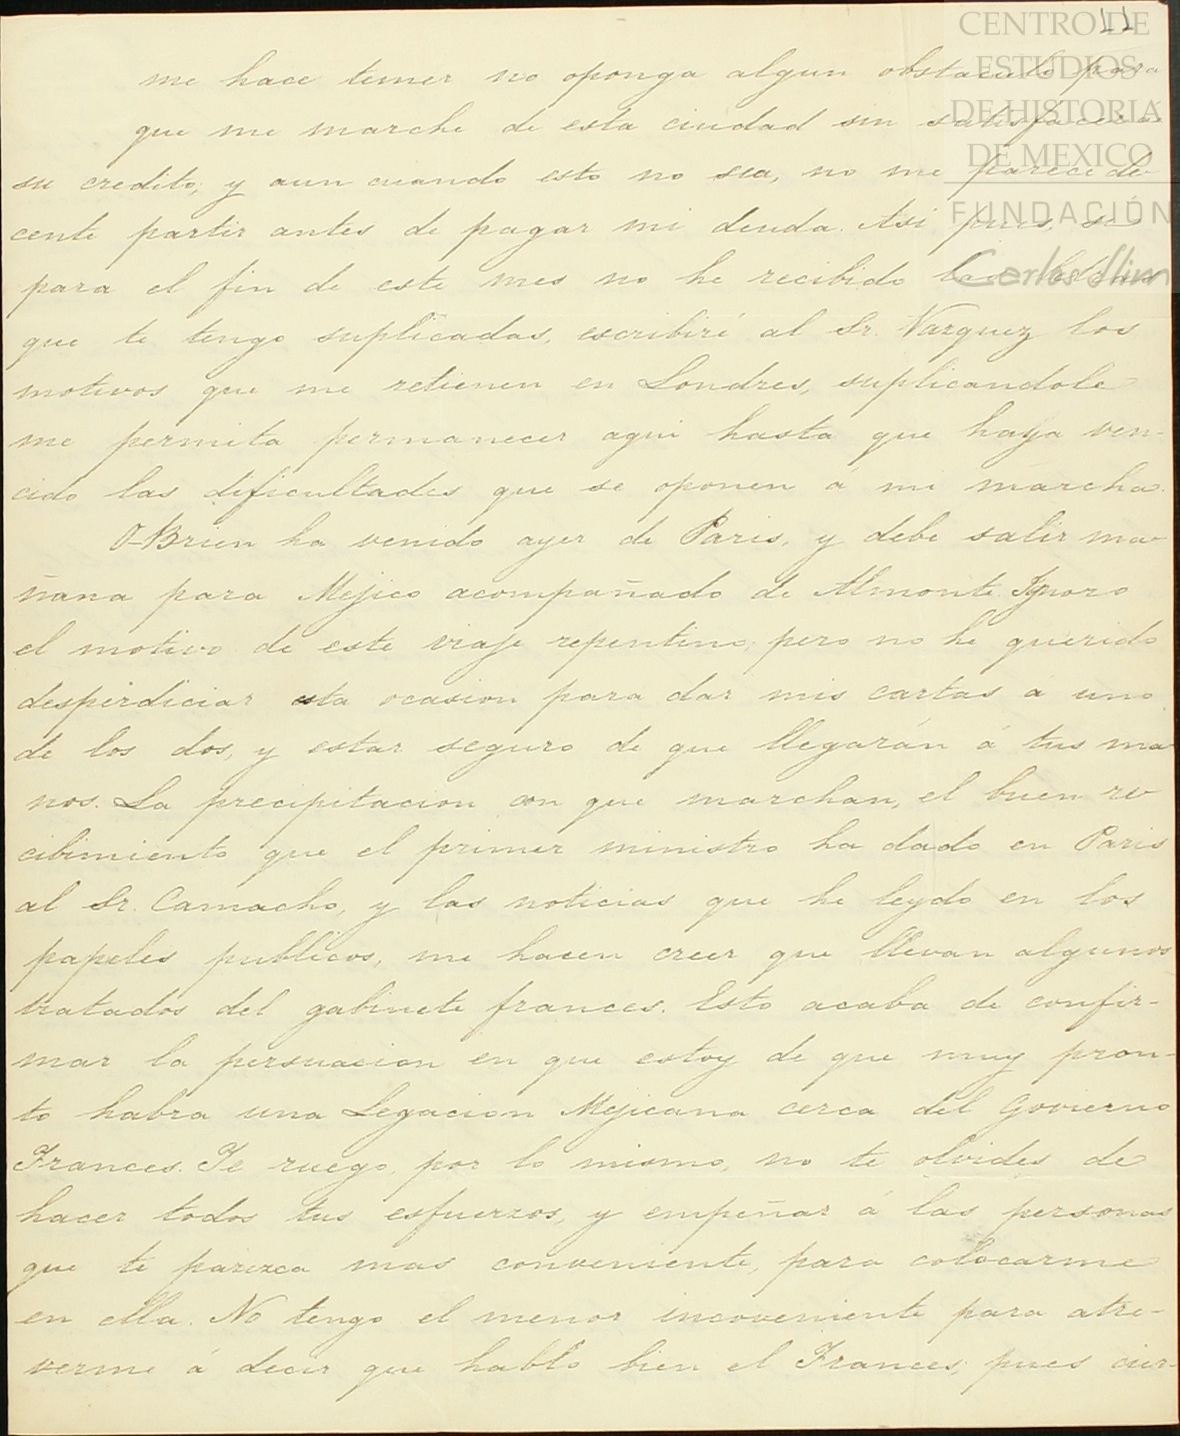 11
CENTRO DE
ESTUDIOS
DE HISTORIA
DE MEXICO
FUNDACIÓN
Carlos Slim
me hace temer no oponga algun obstaculo para
que me marche de esta ciudad sin satisfacer
su credito; y aun cuando esto no sea, no me parece de-
cente partir antes de pagar mi deuda. Asi pues, si
para el fin de este mes no he recibido las
que te tengo suplicadas, escribiré al Sr. Vazquez los
motivos que me retienen en Londres, suplicandole
me permita permanecer aqui hasta que haya ven-
cido las dificultades que se oponen á mi marcha.
O-Brien ha venido ayer de Paris, y debe salir ma-
ñana para Mejico acompañado de Almonte. Ignoro
el motivo de este viaje repentino; pero no he querido
desperdiciar esta ocasion para dar mis cartas a uno
de los dos, y estar seguro de que llegarán á tus ma
nos. La precipitacion con que marchan, el buen re-
cibimiento que el primer ministro ha dado en Paris
al Sr. Camacho, y las noticias que he leydo en los
papeles publicos, me hacen creer que llevan algunos
tratados del gabinete frances. Esto acaba de confir-
mar la persuacion en que estoy de que muy pron-
to habra una Legacion Mejicana cerca del Govierno
Frances. Te ruego, por lo mismo, no te olvides de
hacer todos tus esfuerzos, y empeñar á las personas
que te parezca mas conveniente, para colocarme
en ella. No tengo el menor incoveniente para atre-
verme á decir que hablo bien el Frances; pues cier-